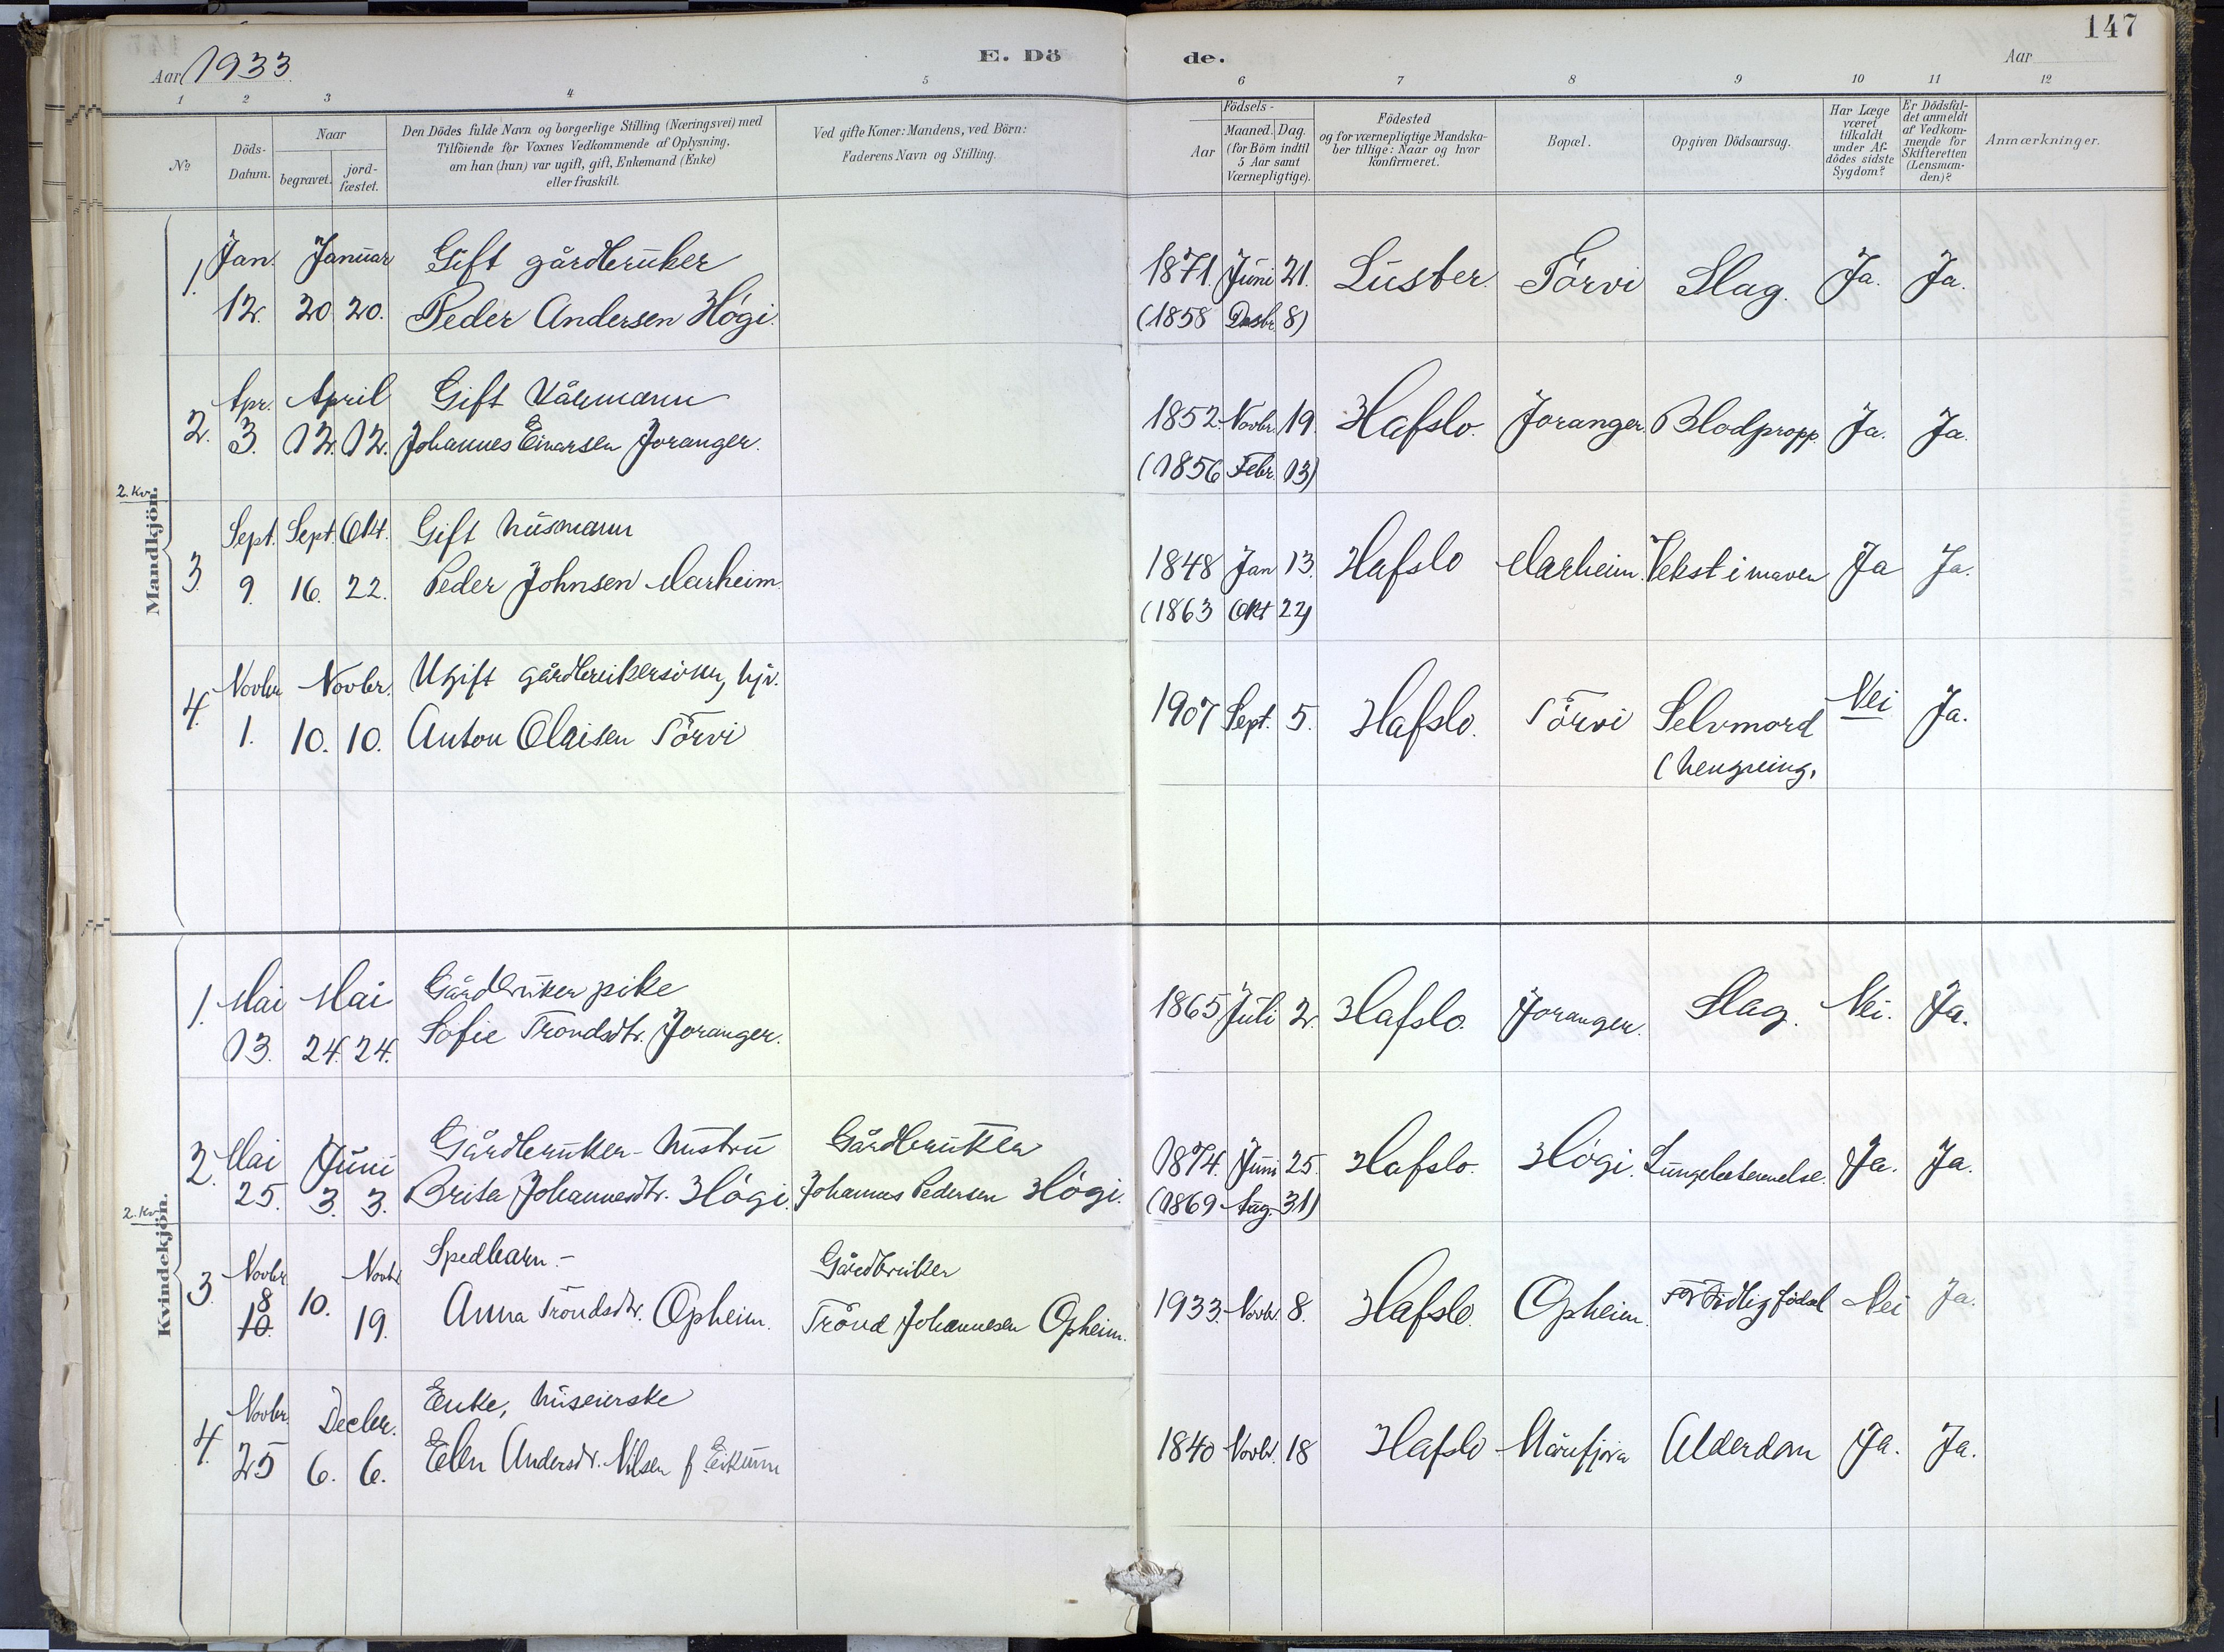 147
Aar 1933. E. Dö de. Aar
1 2 3 4 5 6 7 8 9 10 11 12
No
Döds-Datum.
Naar
begravet.
jord-
fæstet.
Den Dödes fulde Navn og borgerlige Stilling (Næringsvei) med
Tilföiende for Voxnes Vedkommende af Oplysning,
om han (hun) var ugift, gift, Enkemand (Enke)
eller fraskilt.
Ved gifte Koner: Mandens, ved Börn:
Faderens Navn og Stilling.
Födsels-
Aar
Maaned. Dag.
(for Börn indtil
5 Aar samt
Værnepligtige).
Födested
og for værnepligtige Mandska-
ber tillige: Naar og hvor
konfirmeret.
Bopæl.
Opgiven Dödsaarsag.
Har Læge
været
tilkaldt
under Af-
dödes sidste
Sygdom?
Er Dödsfal-
det anmeldt
af Vedkom-
mende for
Skifteretten
(Lensman-
den)?
Anmærkninger.
2. Kv.
Mandkjön.
1. Jan. Januar Gift gårdbruker 1871. Juni 21. Luster. Törvi Slag. Ja. Ja.
12. 20. 20. Peder Andersen Högi. (1858 Desbr. 8)
2. Apr. April Gift kårmann 1852. Novbr. 19. Hafslo. Joranger. Blodpropp. Ja. Ja.
3. 12. 12. Johannes Einarsen Joranger. (1856 Febr. 13)
3. Sept. Sept. Okt. Gift husmann 1848 Jan 13. Hafslo Marheim. Vekst i maven Ja Ja.
9. 16. 22. Peder Johnsen Marheim. (1863 Okt 22)
4. Novbr. Novbr. Ugift gårdbrukersönn, 1907 Sept. 5. Hafslo. Törvi Selvmord Nei Ja.
1. 10. 10. Anton Olaisen Törvi (hengning.
2. Kv.
Kvindekjön.
1. Mai Mai Gårdbruker pike 1865 Juli 2. Hafslo. Joranger. Slag. Nei. Ja.
13. 24. 24. Sofie Trondsdtr. Joranger.
2. Mai Juni Gårdbruker-hustru Gårdbruker 1874. Juni 25. Hafslo. Högi. Lungebetennelse. Ja. Ja.
25. 3. 3. Brita Johannesdtr. Högi. Johannes Pedersen Högi. (1869 Aug. 31)
3. Novbr. Novbr Spedbarn.- Gårdbruker 1933. Novbr. 8. Hafslo. Opheim. For tidlig födsel Nei Ja.
8 10. 10. 19. Anna Tröndsdtr. Opheim. Trönd Johannesen Opheim.
4. Novbr. Decbr. Enke, huseierske 1840 Novbr. 18 Hafslo Marifjöra Alderdom Ja. Ja.
25 6. 6. Elen Andersdr. Nilsen f. Eikum